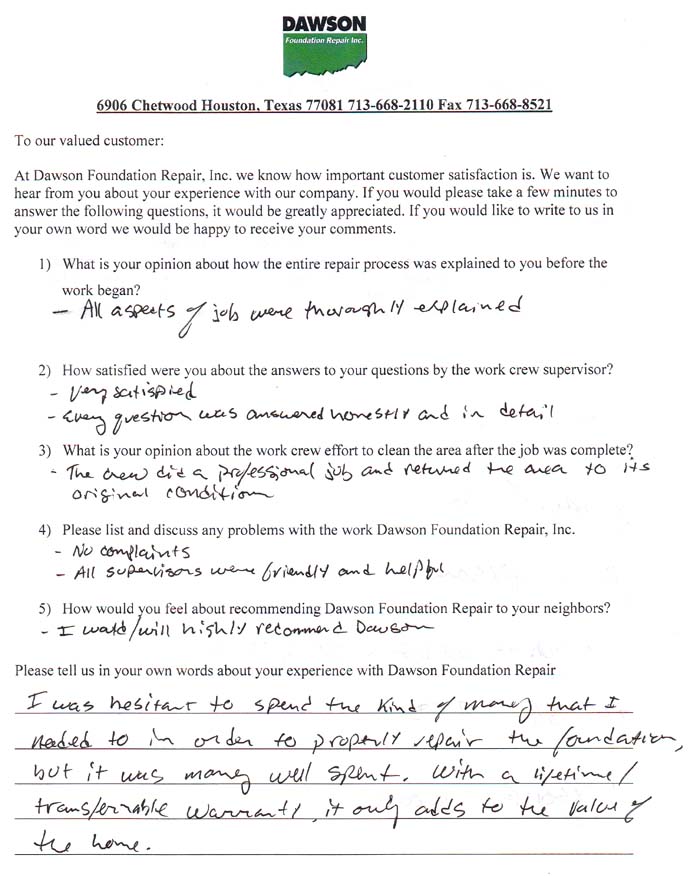 DAWSON
Foundation Repair Inc.
6906 Chetwood Houston, Texas 77081 713-668-2110 Fax 713-668-8521
To our valued customer:
At Dawson Foundation Repair, Inc. we know how important customer satisfaction is. We want to
hear from you about your experience with our company. If you would please take a few minutes to
answer the following questions, it would be greatly appreciated. If you would like to write to us in
your own word we would be happy to receive your comments.
1) What is your opinion about how the entire repair process was explained to you before the
work began?
- All aspects of job were thoroughly explained
2) How satisfied were you about the answers to your questions by the work crew supervisor?
- Very satisfied
- Every question was answered honestly and in detail
3) What is your opinion about the work crew effort to clean the area after the job was complete?
- The crew did a professional job and returned the area to its
original condition
4) Please list and discuss any problems with the work Dawson Foundation Repair, Inc.
- No complaints
- All supervisors were friendly and helpful
5) How would you feel about recommending Dawson Foundation Repair to your neighbors?
- I would/will highly recommend Dawson
Please tell us in your own words about your experience with Dawson Foundation Repair
I was hesitant to spend the kind of money that I
needed to in order to properly repair the foundation,
but it was money well spent. With a lifetime/
transferrable warranty, it only adds to the value of
the home.